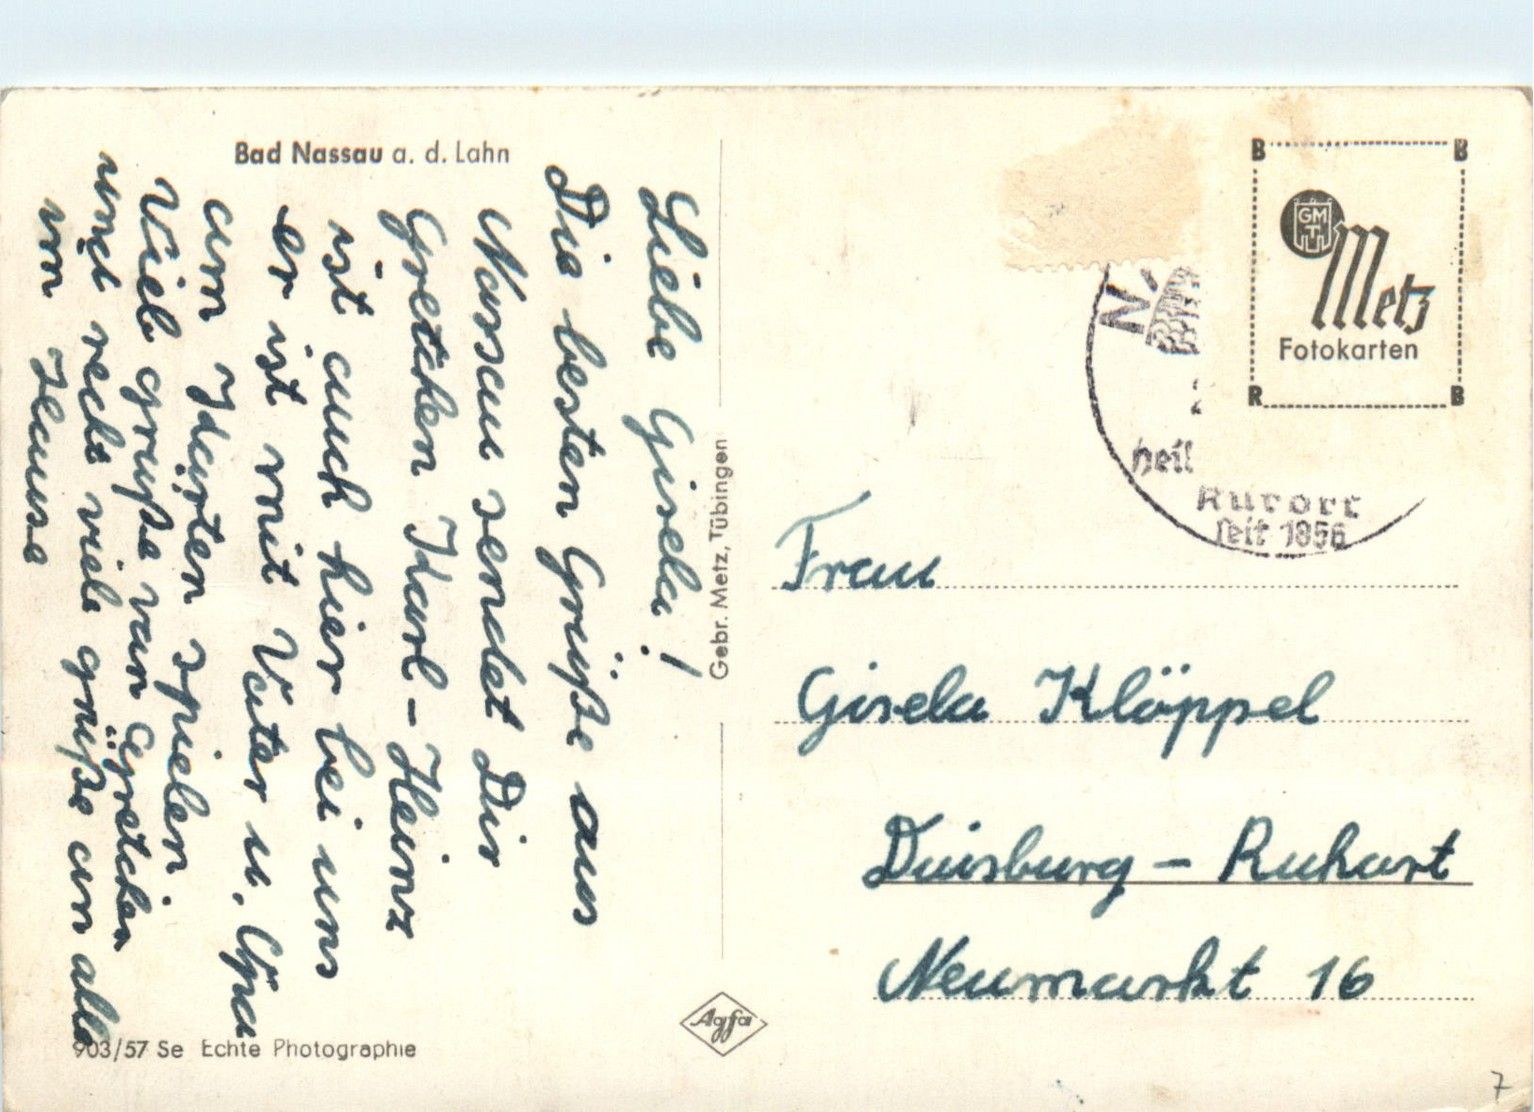 Bad Nassau a. d. Lahn
Liebe Gisela!
Die besten Grüße aus
Nassau sendet Dir
Gretchen Karl-Heinz
ist auch hier bei uns
er ist mit Vater u. Opa
am Karten spielen.
Viele grüße von Gretchen
und recht viele grüße an alle
von Hause
903/57 Se Echte Photographie
Gebr. Metz, Tübingen
Agfa
B B
GM
T
Metz
Fotokarten
R B
N
Heil
Kurort
seit 1856
Frau
Gisela Klöppel
Duisburg - Ruhart
Neumarkt 16
7